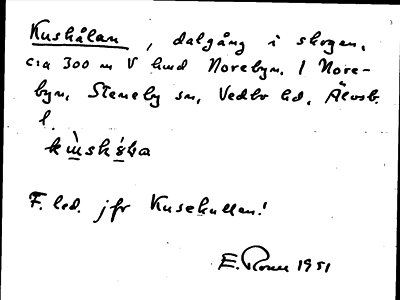 Kushålan, dalgång i skogen,
c:a 300 m V Norebyn. I Nore-
byn, Steneby sn, Vedbo hd, Älvsb.
l.
F. led. jfr Kusekullen!
E. 1951